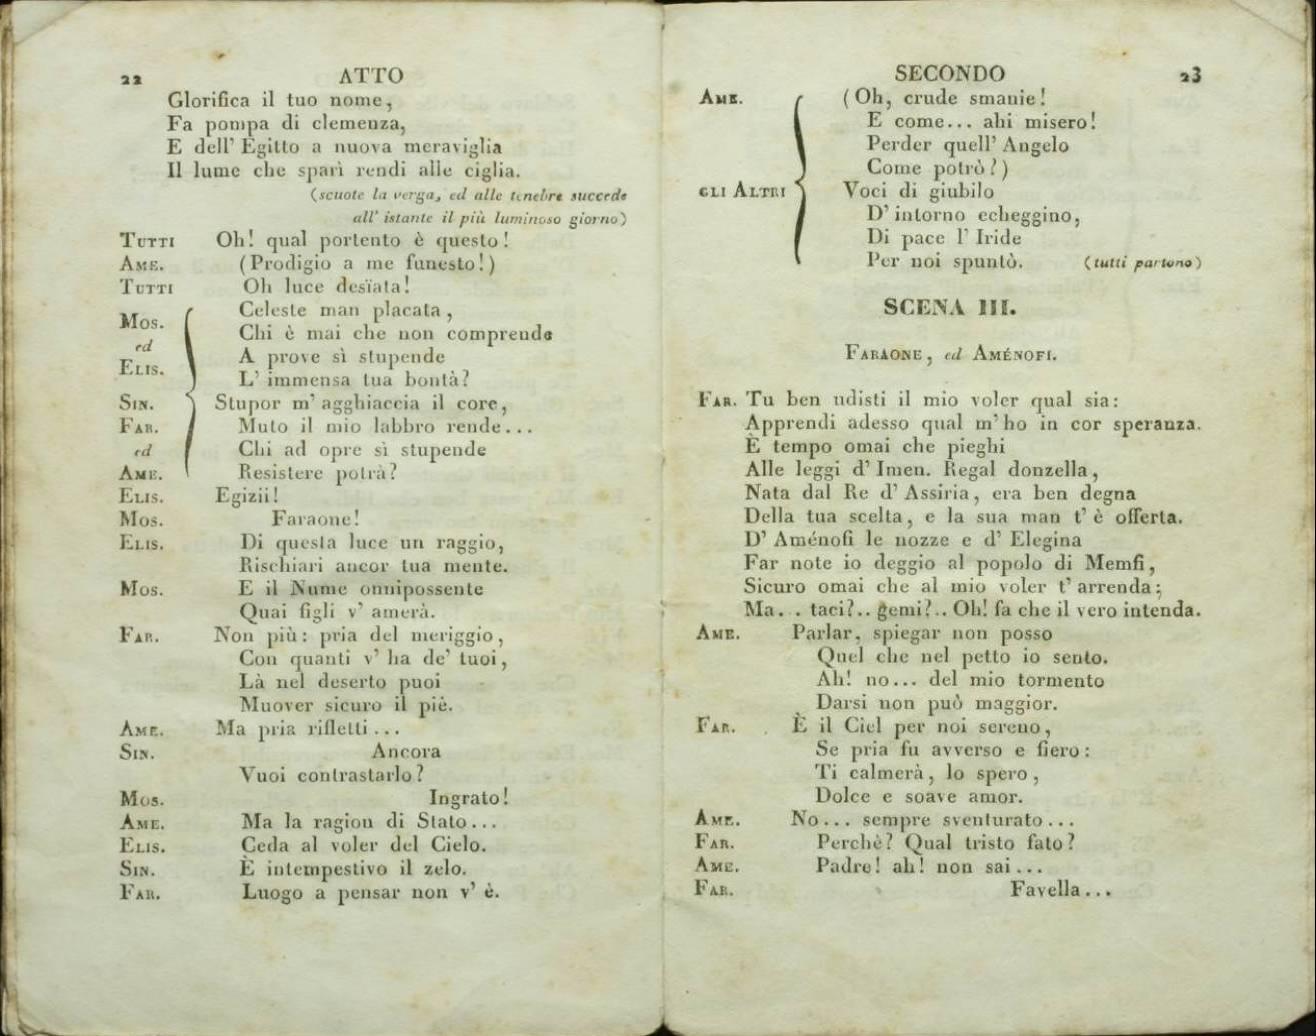 22 ATTO
Glorifica il tuo nome,
Fa pompa di clemenza,
E dell' Egitto a nuova meraviglia
Il lume che sparì rendi alle ciglia.
(scuote la verga, ed alle tenebre succede
all' istante il più luminoso giorno)
TUTTI Oh! qual portento è questo!
AME. (Prodigio a me funesto!)
TUTTI Oh luce desïata!
MOS. Celeste man placata,
ed Chi è mai che non comprende
ELIS. A prove sì stupende
L' immensa tua bontà?
SIN. Stupor m' agghiaccia il core,
FAR. Muto il mio labbro rende...
ed Chi ad opre sì stupende
AME. Resistere potrà?
ELIS. Egizii!
MOS. Faraone!
ELIS. Di questa luce un raggio,
Rischiari ancor tua mente.
MOS. E il Nume onnipossente
Quai figli v' amerà.
FAR. Non più: pria del meriggio,
Con quanti v' ha de' tuoi,
Là nel deserto puoi
Muover sicuro il piè.
AME. Ma pria rifletti...
SIN. Ancora
Vuoi contrastarlo?
MOS. Ingrato!
AME. Ma la ragion di Stato...
ELIS. Ceda al voler del Cielo.
SIN. È intempestivo il zelo.
FAR. Luogo a pensar non v' è.
SECONDO 23
AME. (Oh, crude smanie!
E come... ahi misero!
Perder quell' Angelo
Come potrò?)
GLI ALTRI Voci di giubilo
D' intorno echeggino,
Di pace l' Iride
Per noi spuntò. (tutti partono)
SCENA III.
FARAONE, ed AMÉNOFI.
FAR. Tu ben udisti il mio voler qual sia:
Apprendi adesso qual m' ho in cor speranza.
È tempo omai che pieghi
Alle leggi d' Imen. Regal donzella,
Nata dal Re d' Assiria, era ben degna
Della tua scelta, e la sua man t' è offerta.
D' Aménofi le nozze e d' Elegina
Far note io deggio al popolo di Memfi,
Sicuro omai che al mio voler t' arrenda;
Ma... taci?.. gemi?.. Oh! fa che il vero intenda.
AME. Parlar, spiegar non posso
Quel che nel petto io sento.
Ah! no... del mio tormento
Darsi non può maggior.
FAR. È il Ciel per noi sereno,
Se pria fu avverso e fiero:
Ti calmerà, lo spero,
Dolce e soave amor.
AME. No... sempre sventurato...
FAR. Perchè? Qual tristo fato?
AME. Padre! ah! non sai...
FAR. Favella...